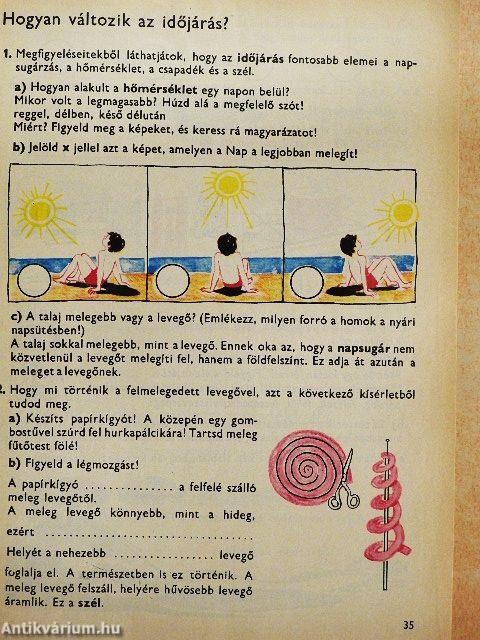 Hogyan változik az időjárás?
1. Megfigyeléseitekből láthatjátok, hogy az időjárás fontosabb elemei a nap-
sugárzás, a hőmérséklet, a csapadék és a szél.
a) Hogyan alakult a hőmérséklet egy napon belül?
Mikor volt a legmagasabb? Húzd alá a megfelelő szót!
reggel, délben, késő délután
Miért? Figyeld meg a képeket, és keress rá magyarázatot!
b) Jelöld x jellel azt a képet, amelyen a Nap a legjobban melegít!
c) A talaj melegebb vagy a levegő? (Emlékezz, milyen forró a homok a nyári
napsütésben!)
A talaj sokkal melegebb, mint a levegő. Ennek oka az, hogy a napsugár nem
közvetlenül a levegőt melegíti fel, hanem a földfelszínt. Ez adja át azután a
meleget a levegőnek.
2. Hogy mi történik a felmelegedett levegővel, azt a következő kísérletből
tudod meg.
a) Készíts papírkígyót! A közepén egy gom-
bostűvel szúrd fel hurkapálcikára! Tartsd meleg
fűtőtest fölé!
b) Figyeld a légmozgást!
A papírkígyó ............... a felfelé szálló
meleg levegőtől.
A meleg levegő könnyebb, mint a hideg,
ezért ...............................
Helyét a nehezebb ................. levegő
foglalja el. A természetben is ez történik. A
meleg levegő felszáll, helyére hűvösebb levegő
áramlik. Ez a szél.
35
Antikvárium.hu